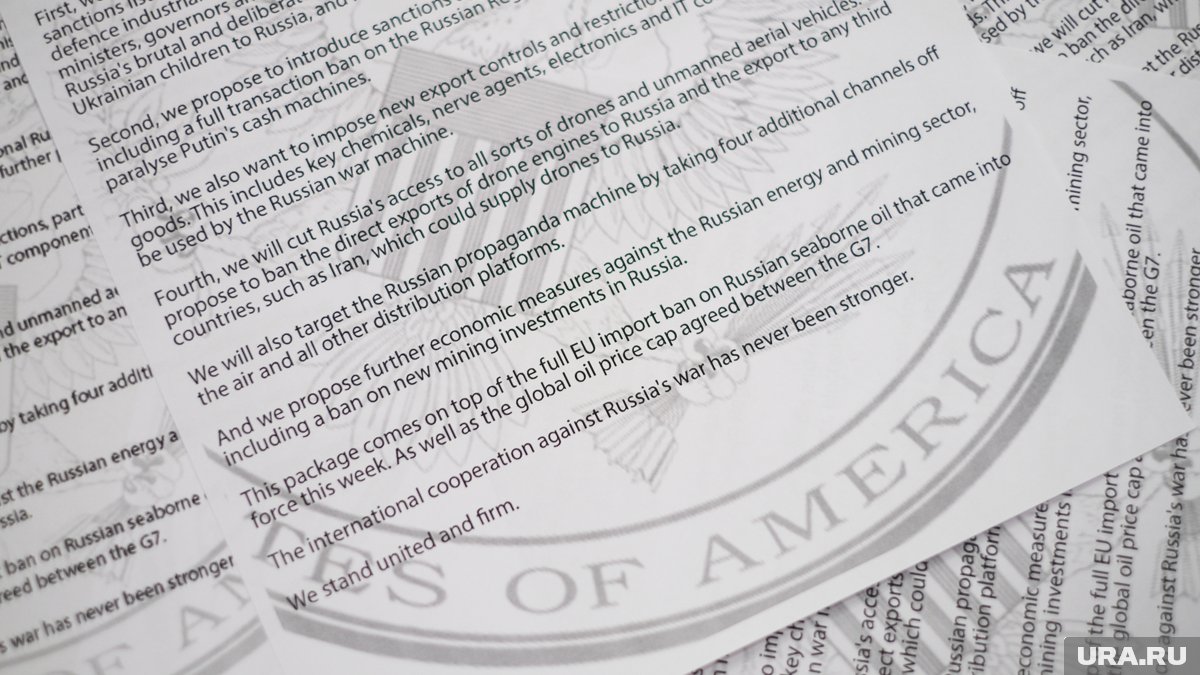 First, we
sanctions lis
defence industrial
ministers, governors a
Russia's brutal and deliberat
Ukrainian children to Russia, and
Second, we propose to introduce sanctions
including a full transaction ban on the Russian Reg
paralyse Putin's cash machines.
Third, we also want to impose new export controls and restriction
goods. This includes key chemicals, nerve agents, electronics and IT co
be used by the Russian war machine.
Fourth, we will cut Russia's access to all sorts of drones and unmanned aerial vehicles.
propose to ban the direct exports of drone engines to Russia and the export to any third
countries, such as Iran, which could supply drones to Russia.
We will also target the Russian propaganda machine by taking four additional channels off
the air and all other distribution platforms.
And we propose further economic measures against the Russian energy and mining sector,
including a ban on new mining investments in Russia.
This package comes on top of the full EU import ban on Russian seaborne oil that came into
force this week. As well as the global oil price cap agreed between the G7.
The international cooperation against Russia's war has never been stronger.
We stand united and firm.
TES OF AMERICA
onal Ru
further
ctions, part
component
nd unmanned ae
the export to an
by taking four additi
st the Russian energy a
ssia.
ban on Russian seaborne
reed between the G7.
s war has never been stronger
OF AM
we will cut
ban the di
ch as Iran,
off
mining sector,
aborne oil that came into
en the G7.
ever been stronger
key ch
n war
ia's acce
ect exports
which could
ussian propag
ribution platform
economic measure
ining investments
of the full EU import
global oil price cap
against Russia's war ha
URA.RU